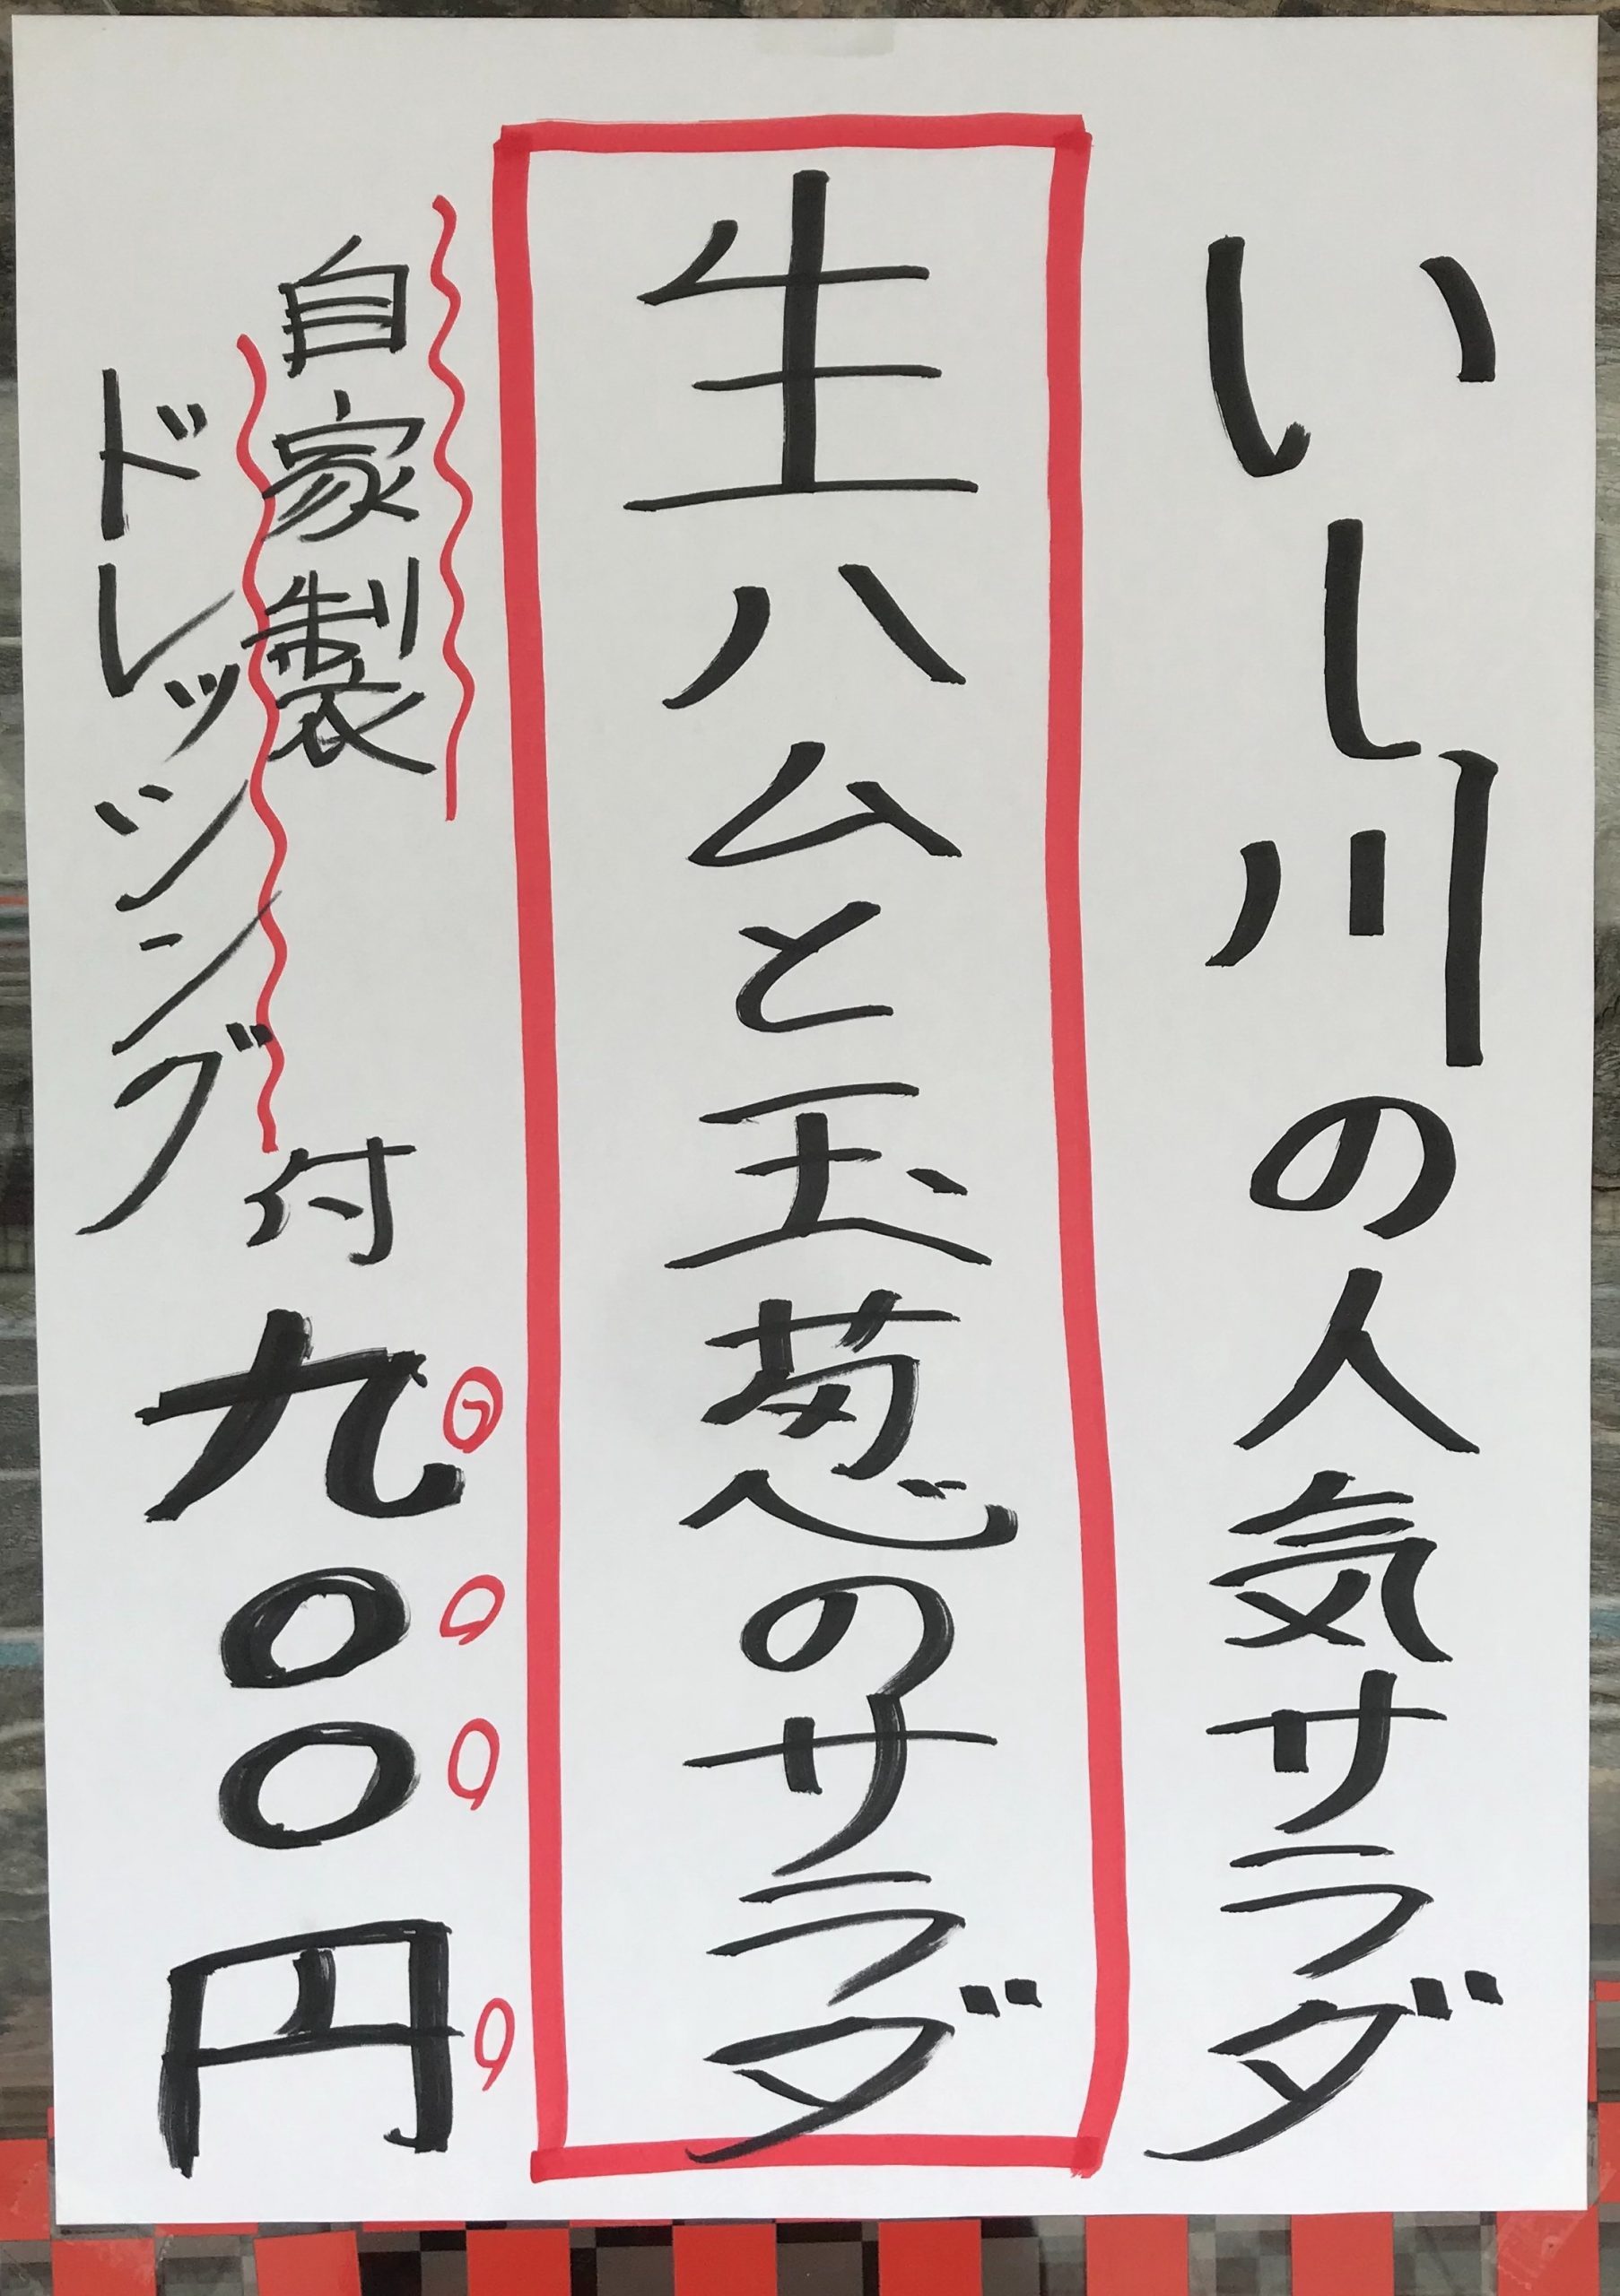 いし川の人気サラダ
生ハムと玉葱のサラダ
自家製
ドレッシング
付
九〇〇円